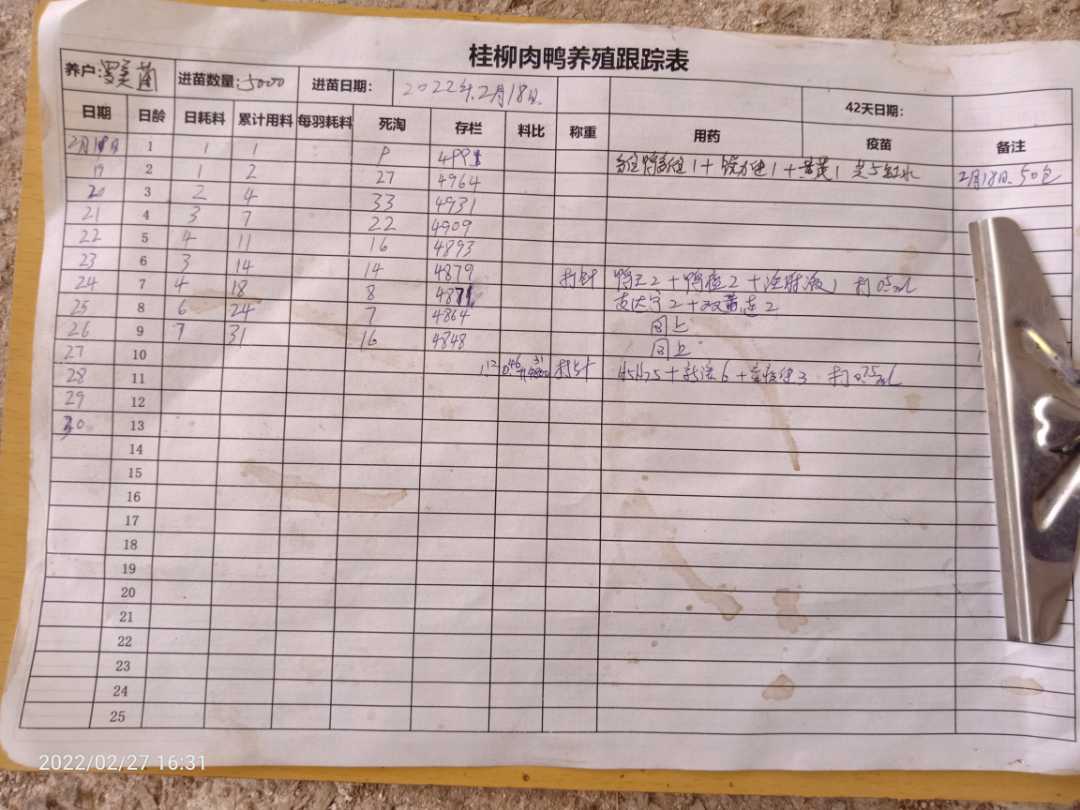 桂柳肉鸭养殖跟踪表
养户: 进苗数量:5000 进苗日期: 2022年2月18日. 42天日期:
日期 日龄 日耗料 累计用料 每羽耗料 死淘 存栏 料比 称重 用药 疫苗 备注
2月18日 1 1 1 9 4991
19 2 1 2 27 4964 1 + 1 + 1 2月18日.50包
20 3 2 4 33 4931
21 4 3 7 22 4909
22 5 4 11 16 4893
23 6 3 14 14 4879 打针 2 + 2 + 注射液1 打0.5ml
24 7 4 18 8 4871 2 + 2
25 8 6 24 7 4864 同上
26 9 7 31 16 4848 同上
27 10 打针 6 + 3 打0.75ml
28 11
29 12
30 13
14
15
16
17
18
19
20
21
22
23
24
25
2022/02/27 16:31